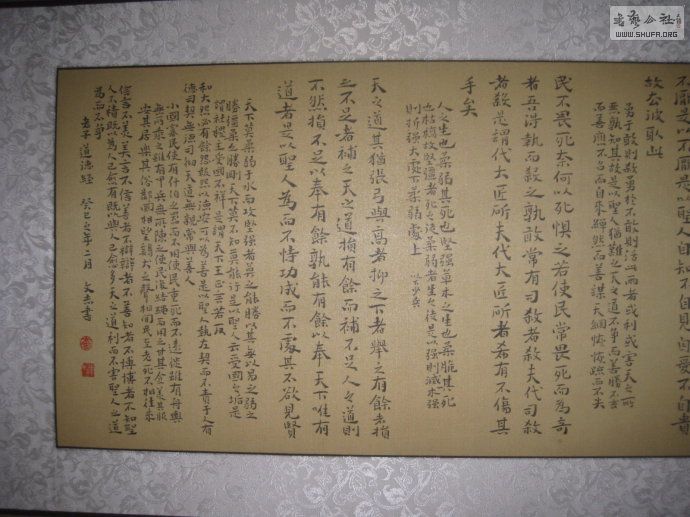 不厭是以不厭是以聖人自知不自見自愛不自貴
故去彼取此
勇于敢則殺勇於不敢則活此两者或利或害天之所
惡孰知其故是以聖人猶難之天之道不爭而善勝不言
而善應不召而自來繟然而善謀天網恢恢疏而不失
民不畏死奈何以死惧之若使民常畏死而為奇
者吾得執而殺之孰敢常有司殺者殺夫代司殺
者殺是謂代大匠斫夫代大匠斫者希有不傷其
手矣
人之生也柔弱其死也堅强草木之生也柔脆其死
也枯槁故堅强者死之徒柔弱者生之徒是以强則滅木强
則折强大處下柔弱處上
天之道其猶張弓與高者抑之下者舉之有餘者損
之不足者補之天之道損有餘而補不足人之道則
不然損不足以奉有餘孰能有餘以奉天下唯有
道者是以聖人為而不恃功成而不處其不欲見賢
天下莫柔弱于水而攻堅强者莫之能勝以其無以易之弱之
勝强柔之勝剛天下莫不知莫能行是以聖人云受國之垢是
謂社稷主受國不祥是謂天下王正言若反
和大怨必有餘怨報怨以德安可以為善是以聖人執左契而不責于人有
德司契無德司徹天道無親常與善人
小國寡民使有什伯之器而不用使民重死而不遠徙雖有舟輿
無所乘之雖有甲兵無所陳之使民復結繩而用之甘其食美其服
安其居樂其俗鄰國相望雞犬之聲相聞民至老死不相往來
信言不美美言不信善者不辯辯者不善知者不博博者不知聖
人不積既以為人己愈有既以與人己愈多天之道利而不害聖人之道
為而不爭
老子道德經 癸巳之年二月 文志書
書藝公社
WWW.SHUFA.ORG